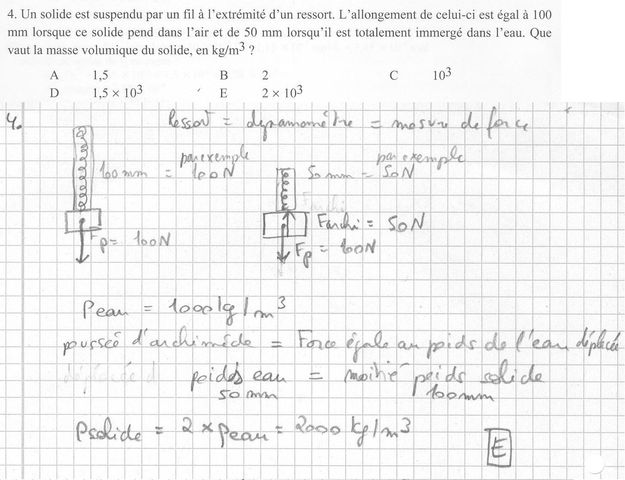 4. Un solide est suspendu par un fil à l'extrémité d'un ressort. L'allongement de celui-ci est égal à 100
mm lorsque ce solide pend dans l'air et de 50 mm lorsqu'il est totalement immergé dans l'eau. Que
vaut la masse volumique du solide, en kg/m³ ?
A 1,5 B 2 C 10³
D 1,5 × 10³ E 2 × 10³
4. Ressort = dynamomètre = mesure de force
par exemple par exemple
100 mm = 100N 50 mm = 50N
Farchi = 50N
Fp = 100N Fp = 100N
ρeau = 1000 kg/m³
poussée d'archimède = Force égale au poids de l'eau déplacée
poids eau = moitié poids solide
50 mm 100 mm
ρsolide = 2 × ρeau = 2000 kg/m³
E